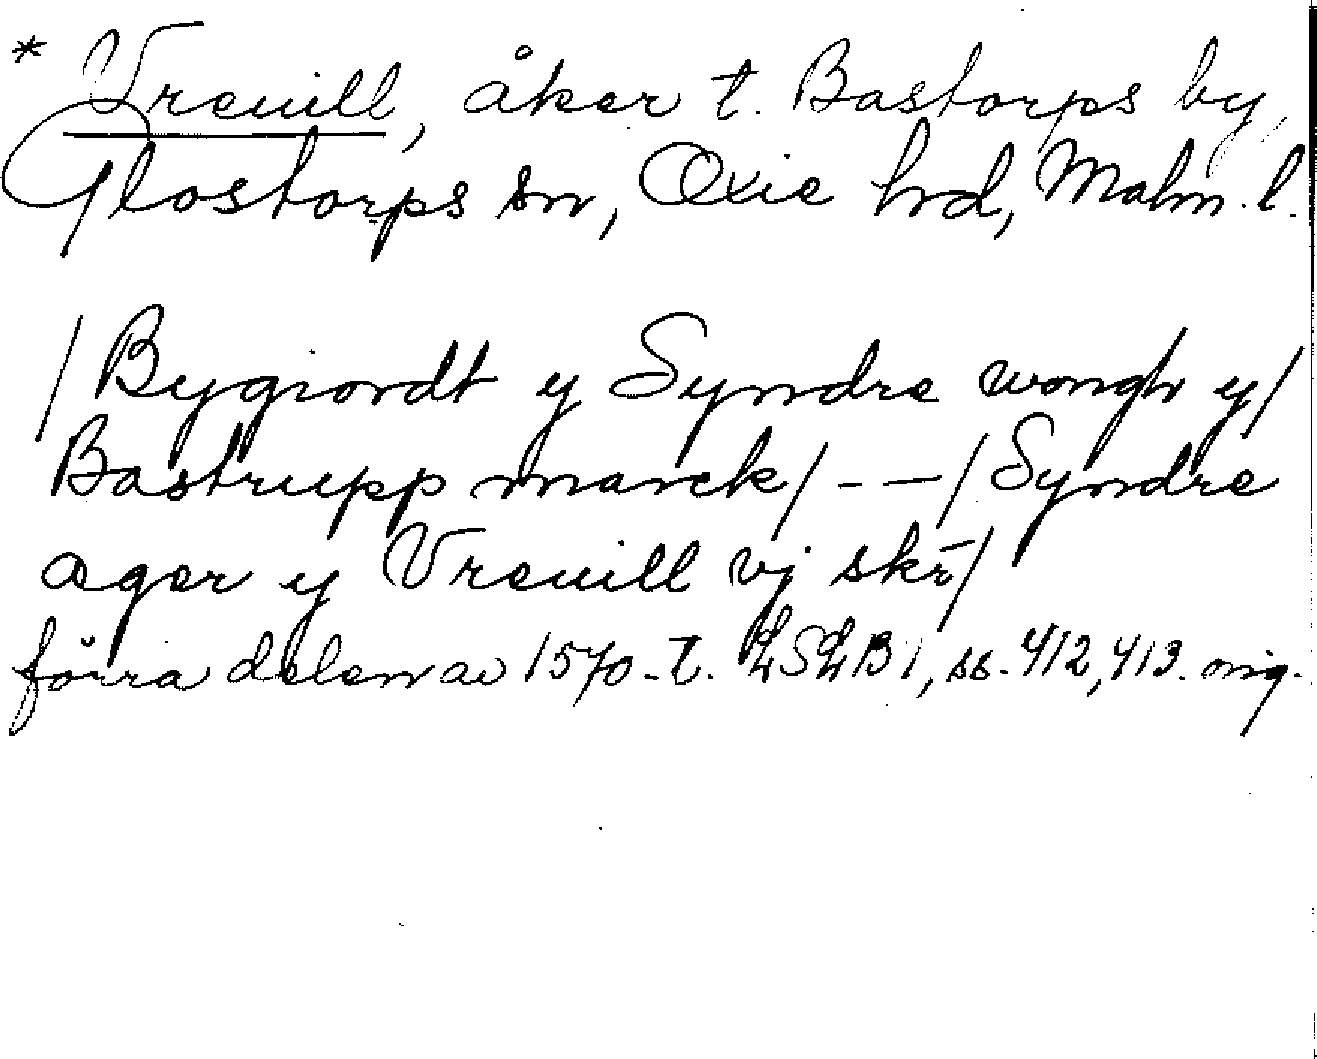 * Vreuill, åker t. Bastorps by,
Glostorps sn, Oxie hd, Malm. l.
/Bygiordt y Syndre wongh y/
Bastrupp marck/ - — / Syndre
ager y Vreuill vj skr̄/
förra delen av 1570-t. LSLB1, ss. 412, 413. orig.